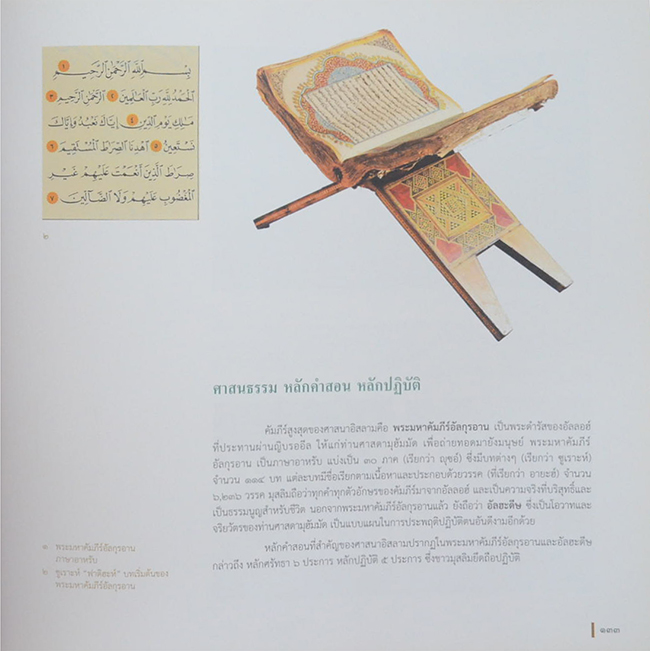 بِسْمِ اللَّهِ الرَّحْمَٰنِ الرَّحِيمِ ١
الْحَمْدُ لِلَّهِ رَبِّ الْعَالَمِينَ ٢ الرَّحْمَٰنِ الرَّحِيمِ ٣
مَالِكِ يَوْمِ الدِّينِ ٤ إِيَّاكَ نَعْبُدُ وَإِيَّاكَ
نَسْتَعِينُ ٥ اهْدِنَا الصِّرَاطَ الْمُسْتَقِيمَ ٦
صِرَاطَ الَّذِينَ أَنْعَمْتَ عَلَيْهِمْ غَيْرِ
الْمَغْضُوبِ عَلَيْهِمْ وَلَا الضَّالِّينَ ٧
๒
ศาสนธรรม หลักคำสอน หลักปฏิบัติ
คัมภีร์สูงสุดของศาสนาอิสลามคือ พระมหาคัมภีร์อัลกุรอาน เป็นพระดำรัสของอัลลอฮ์
ที่ประทานผ่านญิบรออีล ให้แก่ท่านศาสดามุฮัมมัด เพื่อถ่ายทอดมายังมนุษย์ พระมหาคัมภีร์
อัลกุรอาน เป็นภาษาอาหรับ แบ่งเป็น ๓๐ ภาค (เรียกว่า ญุซอ์) ซึ่งมีบทต่างๆ (เรียกว่า ซูเราะห์)
จำนวน ๑๑๔ บท แต่ละบทมีชื่อเรียกตามเนื้อหาและประกอบด้วยวรรค (ที่เรียกว่า อายะฮ์) จำนวน
๖,๒๓๖ วรรค มุสลิมถือว่าทุกคำทุกตัวอักษรของคัมภีร์มาจากอัลลอฮ์ และเป็นความจริงที่บริสุทธิ์และ
เป็นธรรมนูญสำหรับชีวิต นอกจากพระมหาคัมภีร์อัลกุรอานแล้ว ยังถือว่า อัลฮะดีษ ซึ่งเป็นโอวาทและ
จริยวัตรของท่านศาสดามุฮัมมัด เป็นแบบแผนในการประพฤติปฏิบัติตนอันดีงามอีกด้วย
หลักคำสอนที่สำคัญของศาสนาอิสลามปรากฏในพระมหาคัมภีร์อัลกุรอานและอัลฮะดีษ
กล่าวถึง หลักศรัทธา ๖ ประการ หลักปฏิบัติ ๕ ประการ ซึ่งชาวมุสลิมยึดถือปฏิบัติ
๑ พระมหาคัมภีร์อัลกุรอาน
ภาษาอาหรับ
๒ ซูเราะห์ "ฟาติฮะห์" บทเริ่มต้นของ
พระมหาคัมภีร์อัลกุรอาน
๑๓๓